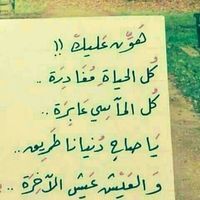 هَوِّن عَليكَ !!
كُل الحياةِ مُغَادِرَة ..
كُل المآسِي عَابِرَة ..
يَا صاحِ دُنيانا طَرِيق ..
وَ العَيْشُ عَيش الآخِرَة ..